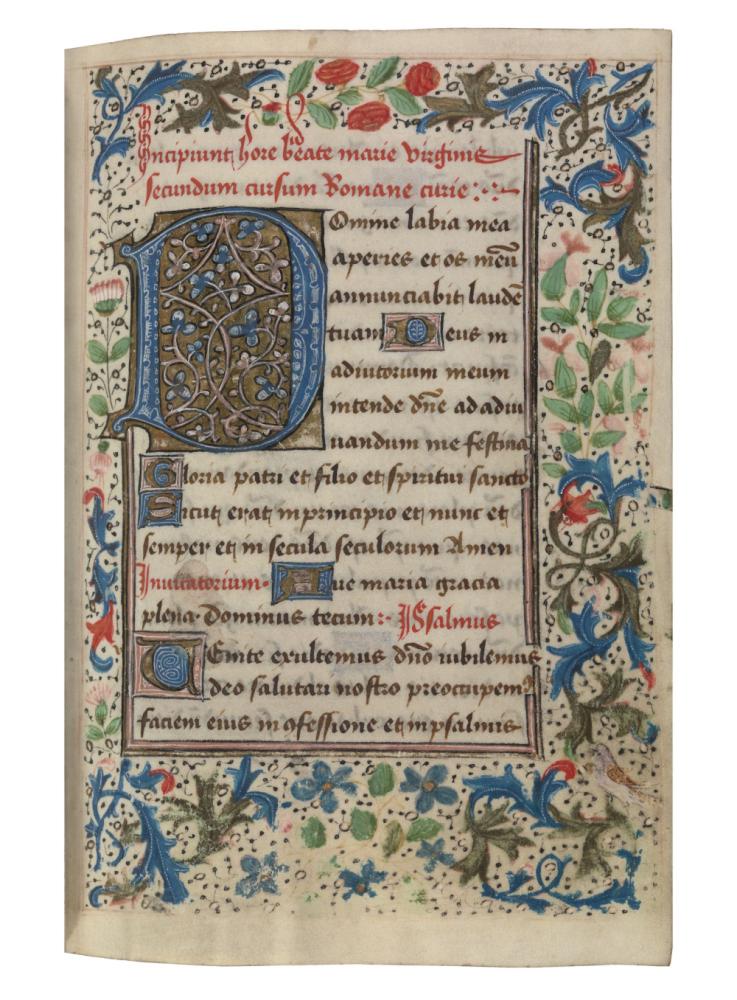 Incipiunt hore beate marie virginis
secundum cursum Romane curie
Domine labia mea
aperies et os meū
annunciabit laudē
tuam Deus in
adiutorium meum
intende dn̄e ad adiu
uandum me festina
Gloria patri et filio et spiritui sancto
Sicut erat in principio et nunc et
semper et in secula seculorum Amen
Inuitatorium. Aue maria gracia
plena. Dominus tecum: Psalmus
Venite exultemus dn̄o iubilemus
deo salutari nostro preocupem9
faciem eius in ꝯfessione et in psalmis